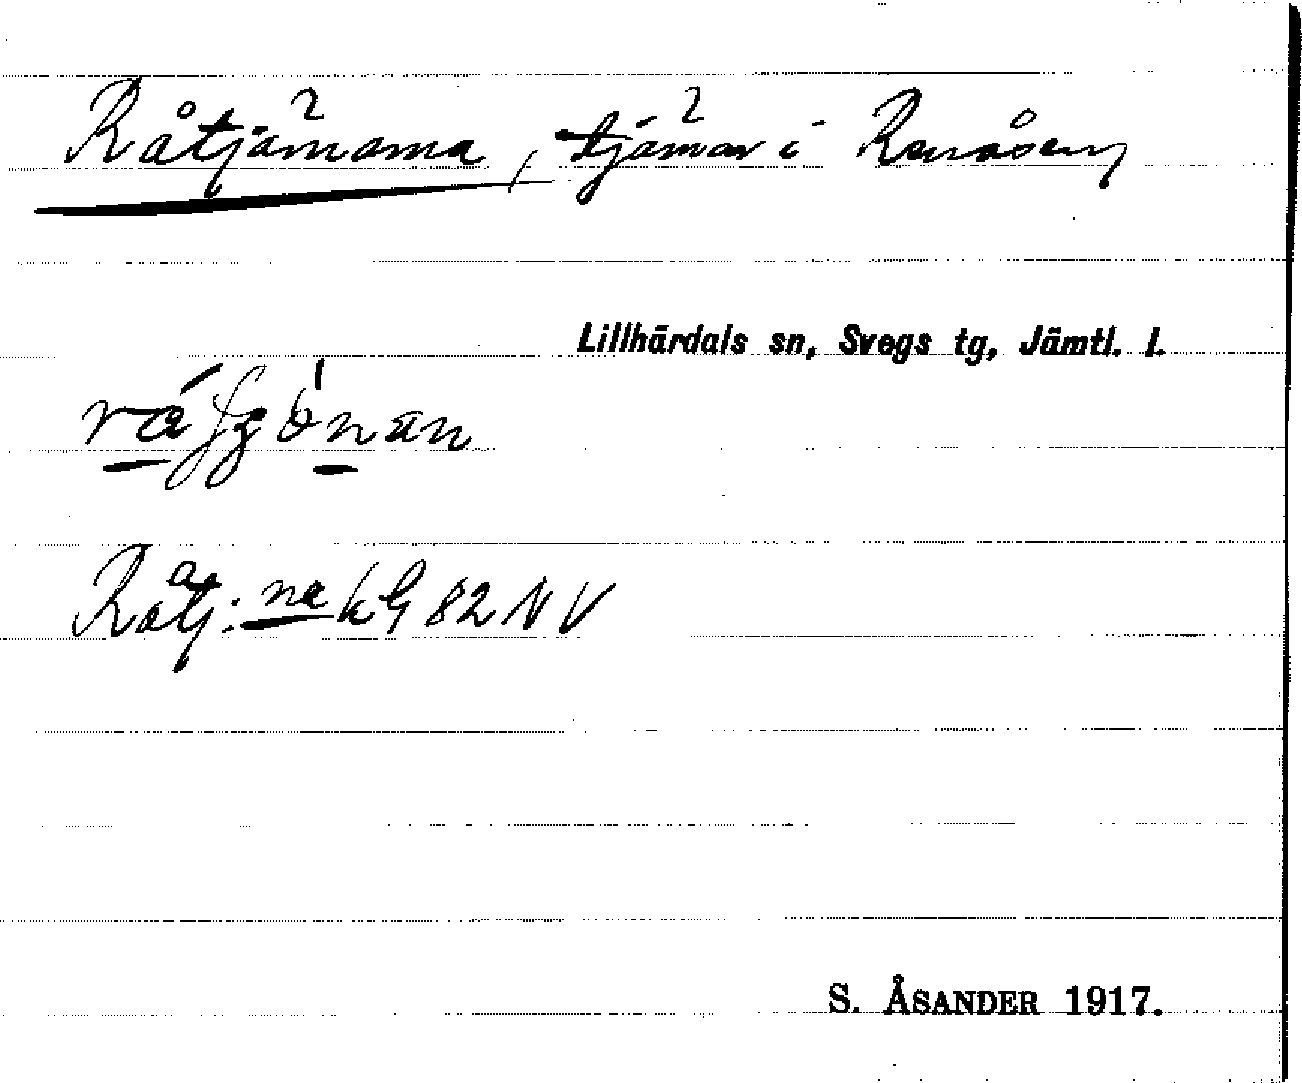 Råtjärnarna, 2 tjärnar i Renåsen,
Lillhärdals sn, Svegs tg, Jämtl. l.
Råtj:na kG 82 NV
S. ÅSANDER 1917.